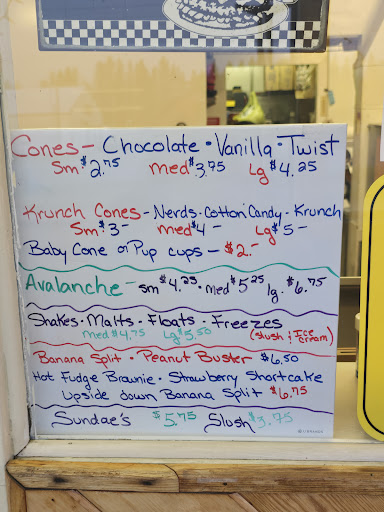 Cones - Chocolate • Vanilla - Twist
Sm $2.75 med $3.75 Lg $4.25
Krunch Cones - Nerds - Cotton Candy - Krunch
Sm $3- med $4- Lg $5-
Baby Cone or Pup cups - $2.-
Avalanche - sm $4.25 • med $5.25 lg. $6.75
Shakes • Malts • Floats • Freezes
med $4.75 Lg $5.50 (Slush & Ice Cream)
Banana Split • Peanut Buster $6.50
Hot Fudge Brownie • Strawberry Shortcake
Upside down Banana Split $6.75
Sundae's $5.75 Slush $3.75